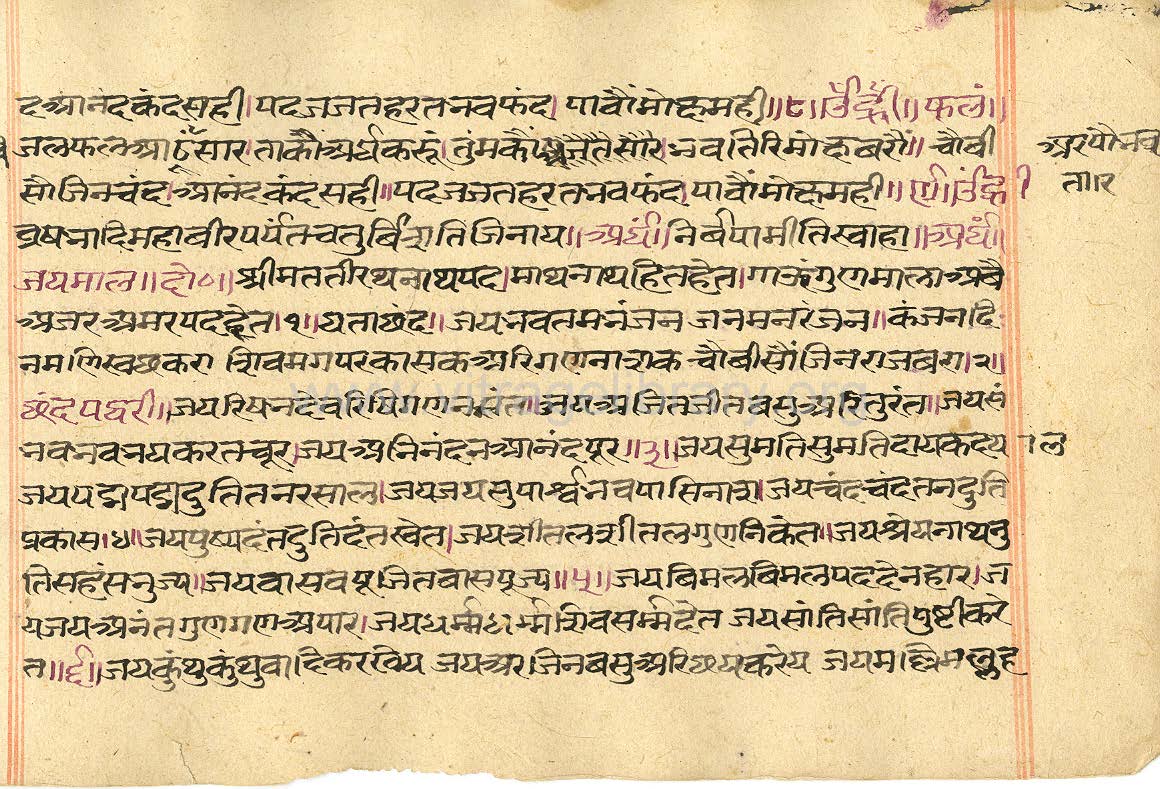 दआनंदकंदसही।पदजजतहरतनवफंद।पावौंमोक्षमही॥८॥ॐह्रीं॥फलं॥
जलफलआठौंसार।ताकौंअर्घकरूं।तुंमकौं नवतिरिमोक्षबरौं॥चौबी
अरपौभव
सौजिनचंद।आनंदकंदसही॥पदजजतहरतनवफंद।पावौंमोक्षमही॥९॥ॐह्री
ता॥२
ब्रषनादिमहाबीरपर्यंतचतुर्बिंशतिजिनाय॥अर्घं॥निर्बपामीतिस्वाहा॥अर्घं॥
जयमाल॥दो०॥श्रीमततीरथनाथपद।माथनाथहितहेत।गाऊंगुणमालाअबै
अजरअमरपददेत।१॥घताछंद॥जयनवतमनंजन जनमनरंजन॥कंजनदि
नमणिस्वछकरा शिवमगपरकासकअरिगणनाशक चौबीसौंजिनराजबरा।२॥
छंदपद्धरी॥जयरिषनदेवरिषिगणनमंत॥जयअजितजीतबसुअरितुरंत॥जयसं
नवनवनयकरतचूर।जयअनिनंदनआनंदपूर॥३॥जयसुमतिसुमतिदायकदया ल
जयपद्मपद्मदुतितनरसाल।जयजयसुपार्श्वनवपासिनाश।जयचंदचंदतनदुति
प्रकास।४॥जयपुष्पदंतदुतिदंतस्वेत।जयशीतलशीतलगुणनिकंत॥जयश्रेयनाथनु
तिसहंसनुज्य॥जयवासवपूजितवासपूज्य॥५॥जयबिमलबिमलपददेनहार।ज
यजयअनंतगुणगणअपार।जयधर्म्मधर्म्मशिवसर्म्मदेत जयसांतिसांतिपुष्टीकरे
त॥६॥जयकुंथुकुंथुवादिकरखेय जयअरजिनबसुअरिछयकरेय जयमल्लिमल्लह
www.vitragelibrary.org